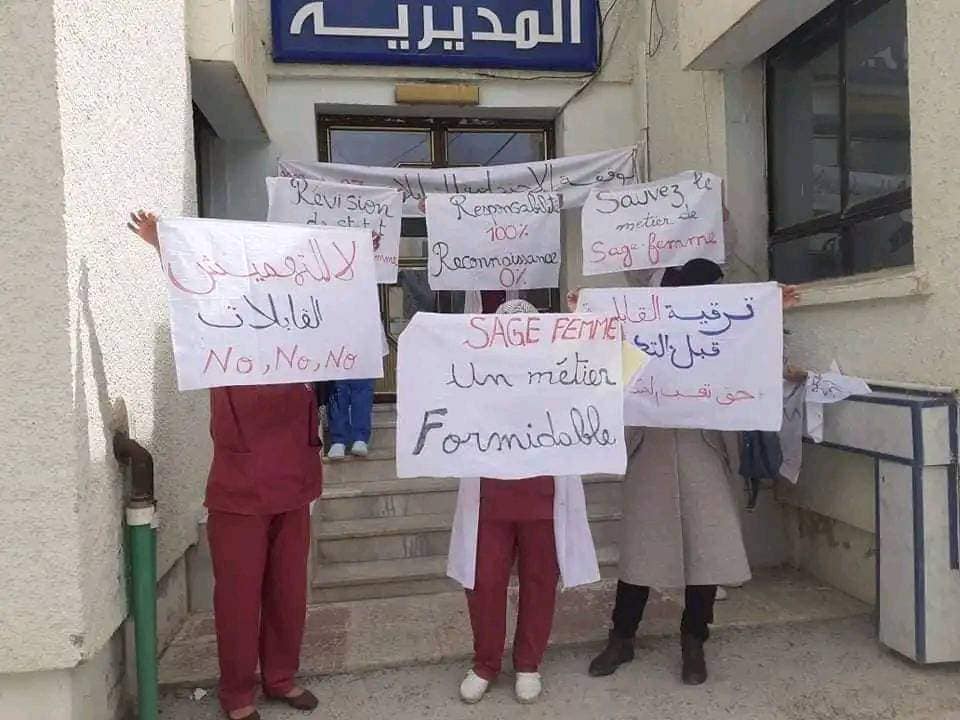 المديرية
وقفة الاحتجاجية
Révision
de statut
Responsabilité
100%
Reconnaissance
0%
Sauvez le
métier de
Sage-femme
لا للتهميش
القابلات
No, No, No
SAGE FEMME
Un métier
Formidable
ترقية
قبل
حق